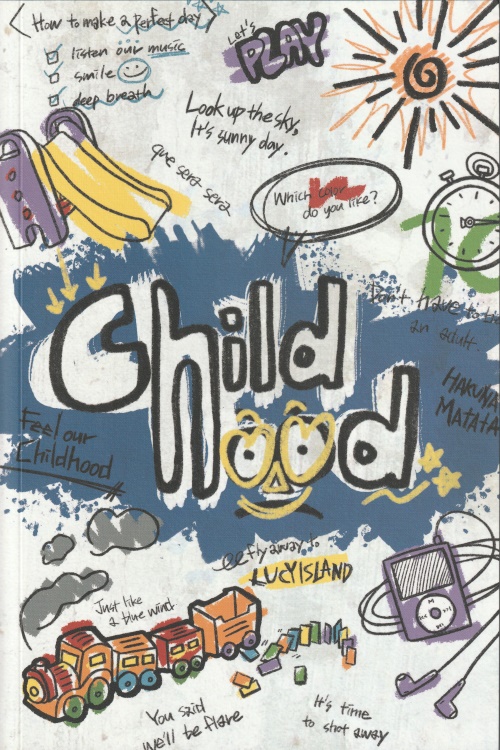 How to make a perfect day
listen our music
smile
deep breath
Let's
PLAY
Look up the sky,
It's sunny day.
que sera sera
Which color
do you like?
Don't have to be
an adult
Child
Hood
HAKUNA
MATATA
Feel our
Childhood
fly away to
LUCY ISLAND
Just like
a blue wind
You said
we'll be flare
It's time
to shot away